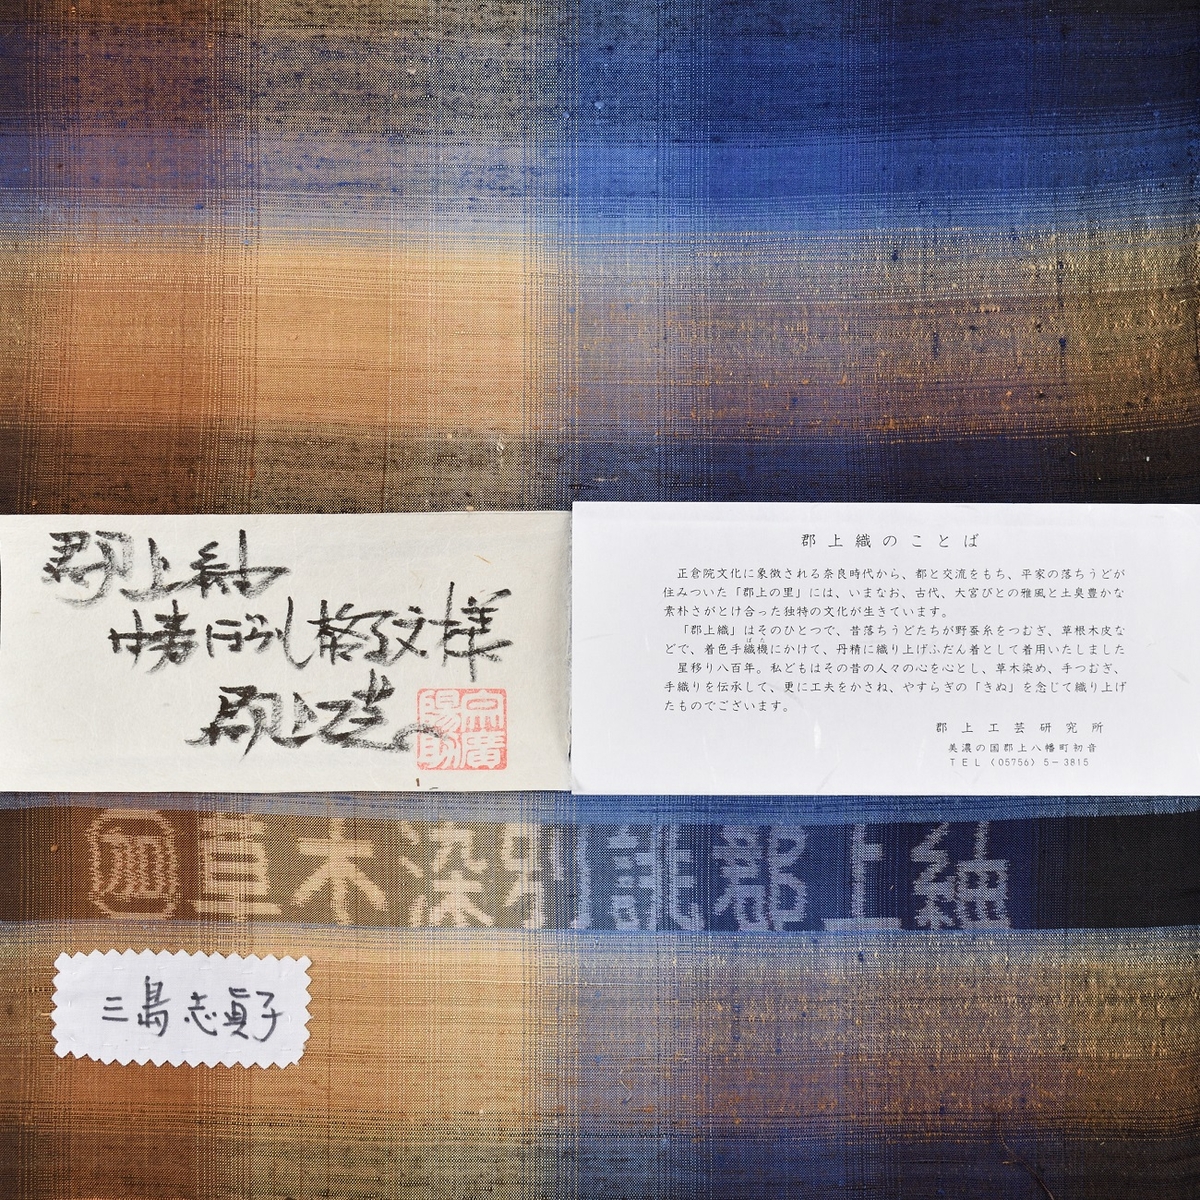 郡上紬
ぼかし格子文様
郡上
宗廣
陽助
郡上織のことば
正倉院文化に象徴される奈良時代から、都と交流をもち、平家の落ちうどが
住みついた「郡上の里」には、いまなお、古代、大宮びとの雅風と土臭豊かな
素朴さがとけ合った独特の文化が生きています。
「郡上織」はそのひとつで、昔落ちうどたちが野蚕糸をつむぎ、草根木皮な
どで、着色手織機にかけて、丹精に織り上げふだん着として着用いたしました
星移り八百年。私どもはその昔の人々の心を心とし、草木染め、手つむぎ、
手織りを伝承して、更に工夫をかさね、やすらぎの「きぬ」を念じて織り上げ
たものでございます。
郡上工芸研究所
美濃の国郡上八幡町初音
TEL (05756) 5-3815
草木染別誂郡上紬
三島志眞子